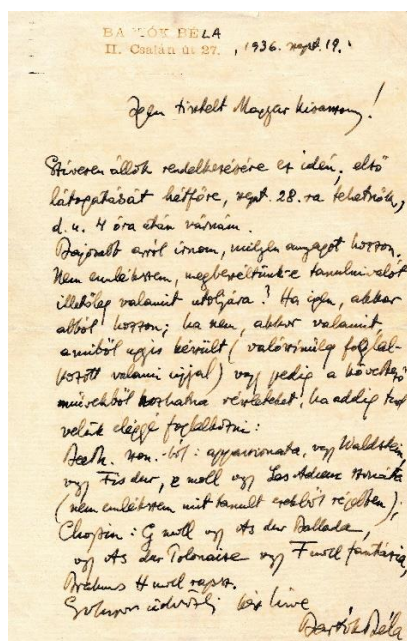 BARTÓK BÉLA
II. Csalán út 27. , 1936. szept. 19.
Igen tisztelt Magyar kisasszony!
Szivesen állok rendelkezésére ez idén; első
látogatását hétfőre, szept. 28.ra tehetnők,
d. u. 4 óra után várnám.
Bajosabb arról írnom, milyen anyagot hozzon.
Nem emlékszem, megbeszéltünk-e tanulnivalót
illetőleg valamit utoljára? Ha igen, akkor
abból hozzon; ha nem, akkor valamit
amiből ugyis készült (valószinüleg foglal-
kozott valami ujjal) vagy pedig a következő
művekből hozhatna részleteket, ha addig tud
velük eléggé foglalkozni:
Beeth. son.-ból: appassionata, vagy Waldstein,
vagy Fis dur, e moll vagy Les Adieux szonáta
(nem emlékszem mit tanult ezekből régebben);
Chopin: G moll vagy As dur Ballada,
vagy As dur Polonaise vagy F moll fantázia,
Brahms H moll raps.
üdvözli kész híve
Bartók Béla